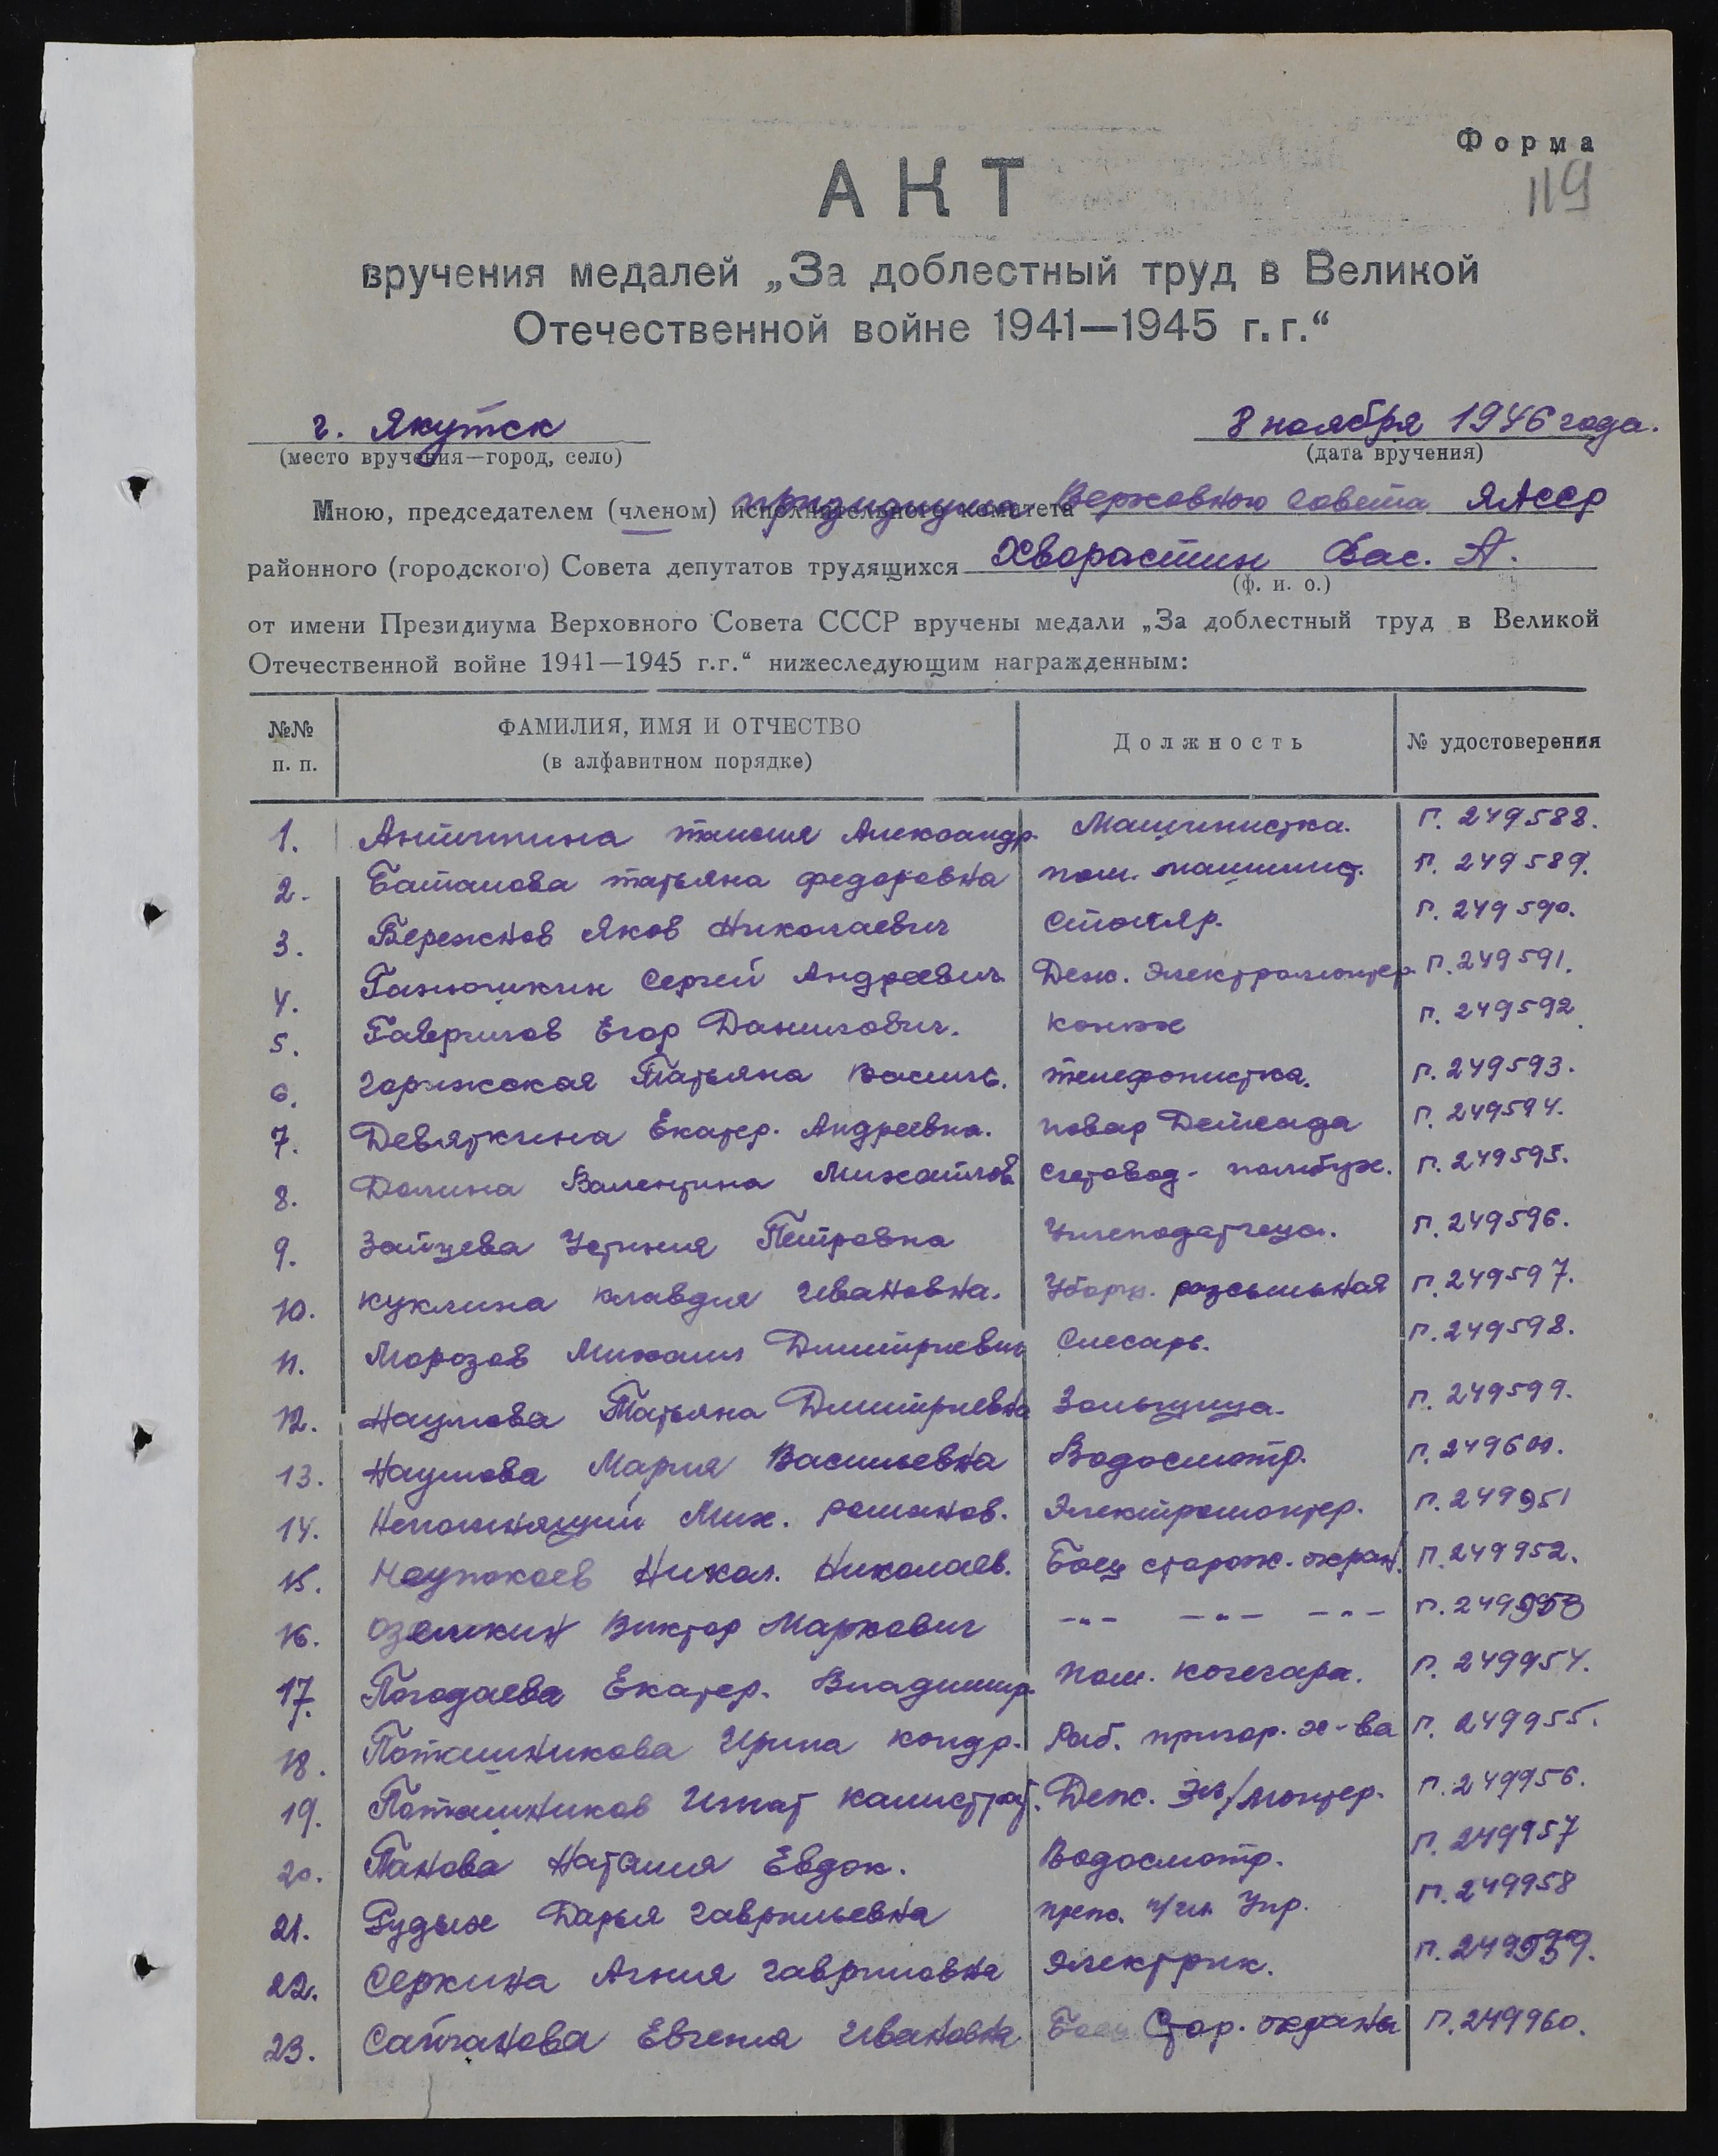 Форма
119
АКТ
вручения медалей „За доблестный труд в Великой
Отечественной войне 1941—1945 г.г.“
г. Якутск
8 ноября 1946 года.
(место вручения—город, село)
(дата вручения)
Мною, председателем (членом) исполнительного комитета президиума Верховного Совета ЯАССР
районного (городского) Совета депутатов трудящихся Хворастин Вас. А.
(ф. и. о.)
от имени Президиума Верховного Совета СССР вручены медали „За доблестный труд в Великой
Отечественной войне 1941—1945 г.г.“ нижеследующим награжденным:
№№ п. п. ФАМИЛИЯ, ИМЯ И ОТЧЕСТВО (в алфавитном порядке) Должность № удостоверения
1. Александр. Машинистка. П. 249588.
2. Баталова татьяна федоровна пом. машинист. П. 249589.
3. Бережнов Яков Николаевич Столяр. П. 249590.
4. Ганюшкин Сергей Андреевич Деж. Электромонтер. П. 249591.
5. Гаврилов Егор Данилович. конюх П. 249592
6. Татьяна Василь. телефонистка. П. 249593.
7. Девяткина Екатер. Андреевна. повар Детсада П. 249594.
8. Долина Валентина Михайлов счетовод - П. 249595.
9. Зайцева Устиния Петровна Углеподатчица. П. 249596.
10. Куклина Клавдия Ивановна. Уборщ. рассыльная П. 249597.
11. Морозов Михаил Дмитриевич Слесарь. П. 249598.
12. Наумова Татьяна Дмитриевна Зольщица. П. 249599.
13. Наумова Мария Васильевна Водосмотр. П. 249600.
14. Непомнящий Мих. романов. Электромонтер. П. 249951
15. Никол. Николаев. Боец сторож. охран. П. 249952.
16. Озёмкин Виктор Маркович -"- -"- -"- П. 249953
17. Погодаева Екатер. Владимир. пом. кочегара. П. 249954.
18. Поташникова Ирина кондр. Раб. пригор. х-ва П. 249955.
19. Поташников Игнат калистрат. Деж. Эл/монтер. П. 249956.
20. Панова Наталия Евдок. Водосмотр. П. 249957
21. Рудых Дарья Гаврильевна Упр. П. 249958
22. Серкина Агния Гавриловна Электрик. П. 249959.
23. Сайганова Евгения Ивановна Боец Стор. охраны П. 249960.